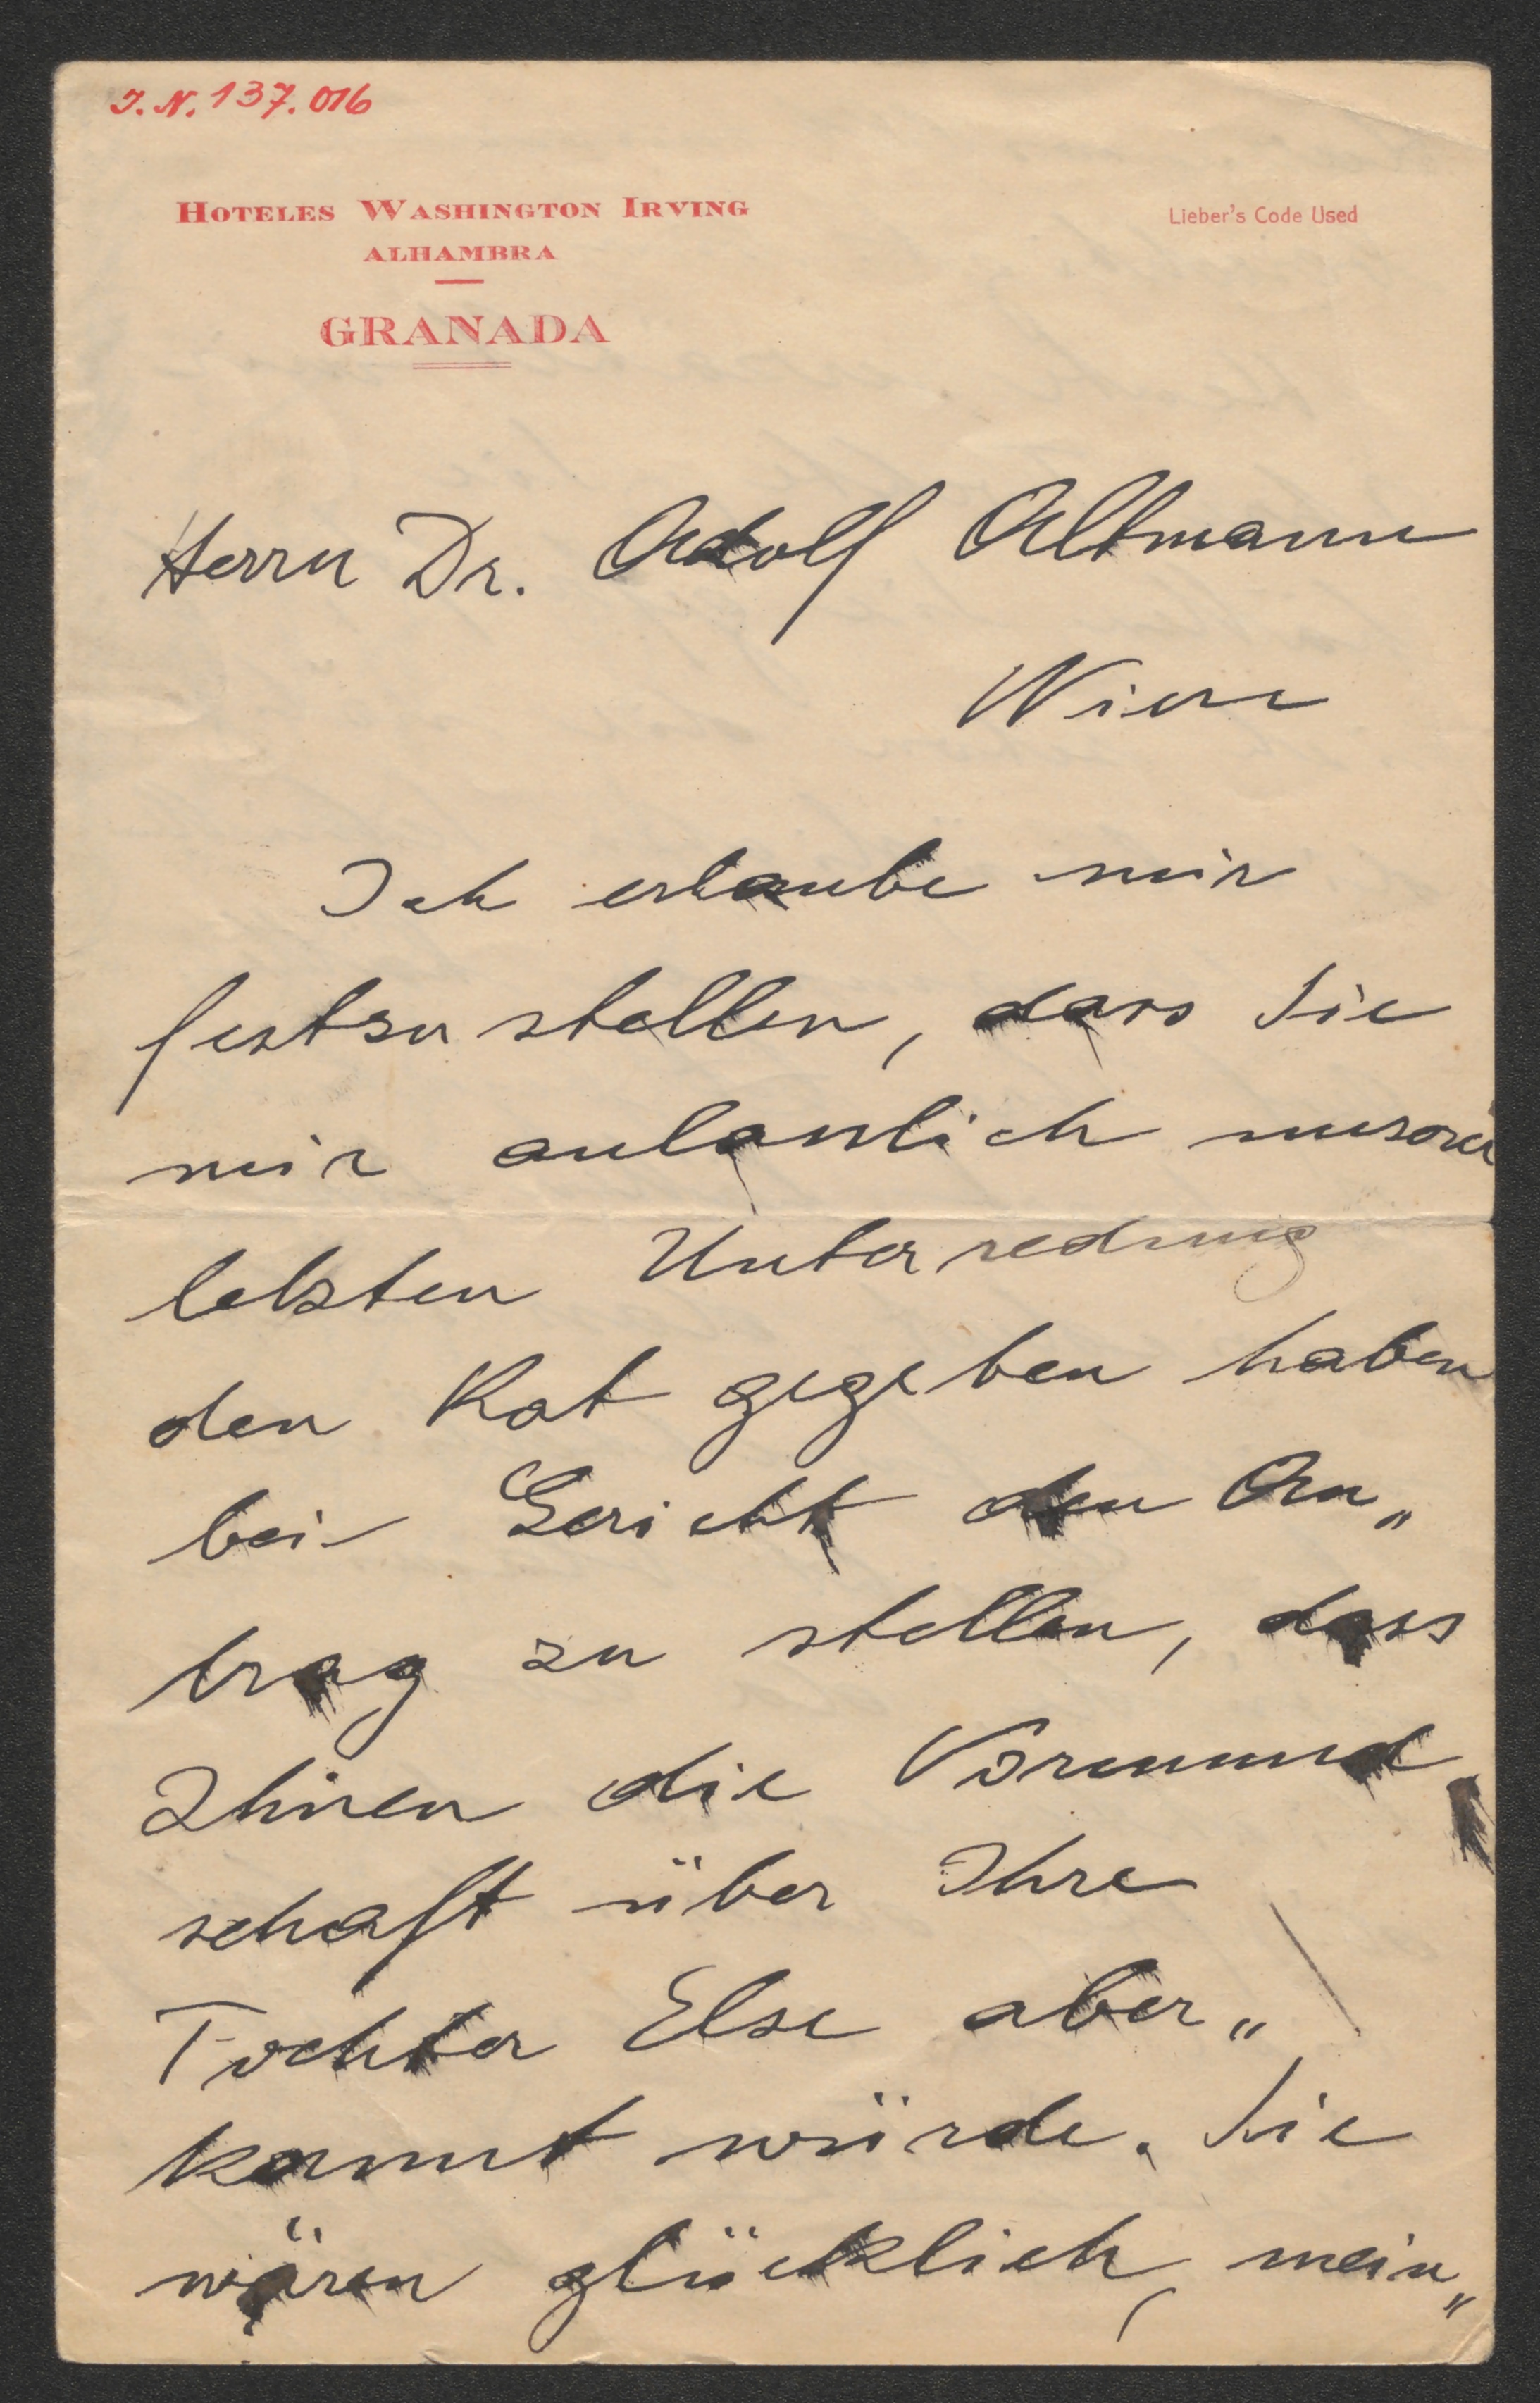 I. N. 137.016
HOTELES WASHINGTON IRVING
ALHAMBRA
GRANADA
Lieber's Code Used
Herrn Dr. Adolf Altmann
Wien
Ich erlaube mir
festzustellen, dass Sie
mir anlässlich unserer
letzten Unterredung
den Rat gegeben haben
bei Gericht den An„
trag zu stellen, dass
Ihnen die Vormund„
schaft über Ihre
Tochter Else aber„
kannt würde. Sie
wären glücklich, mein„